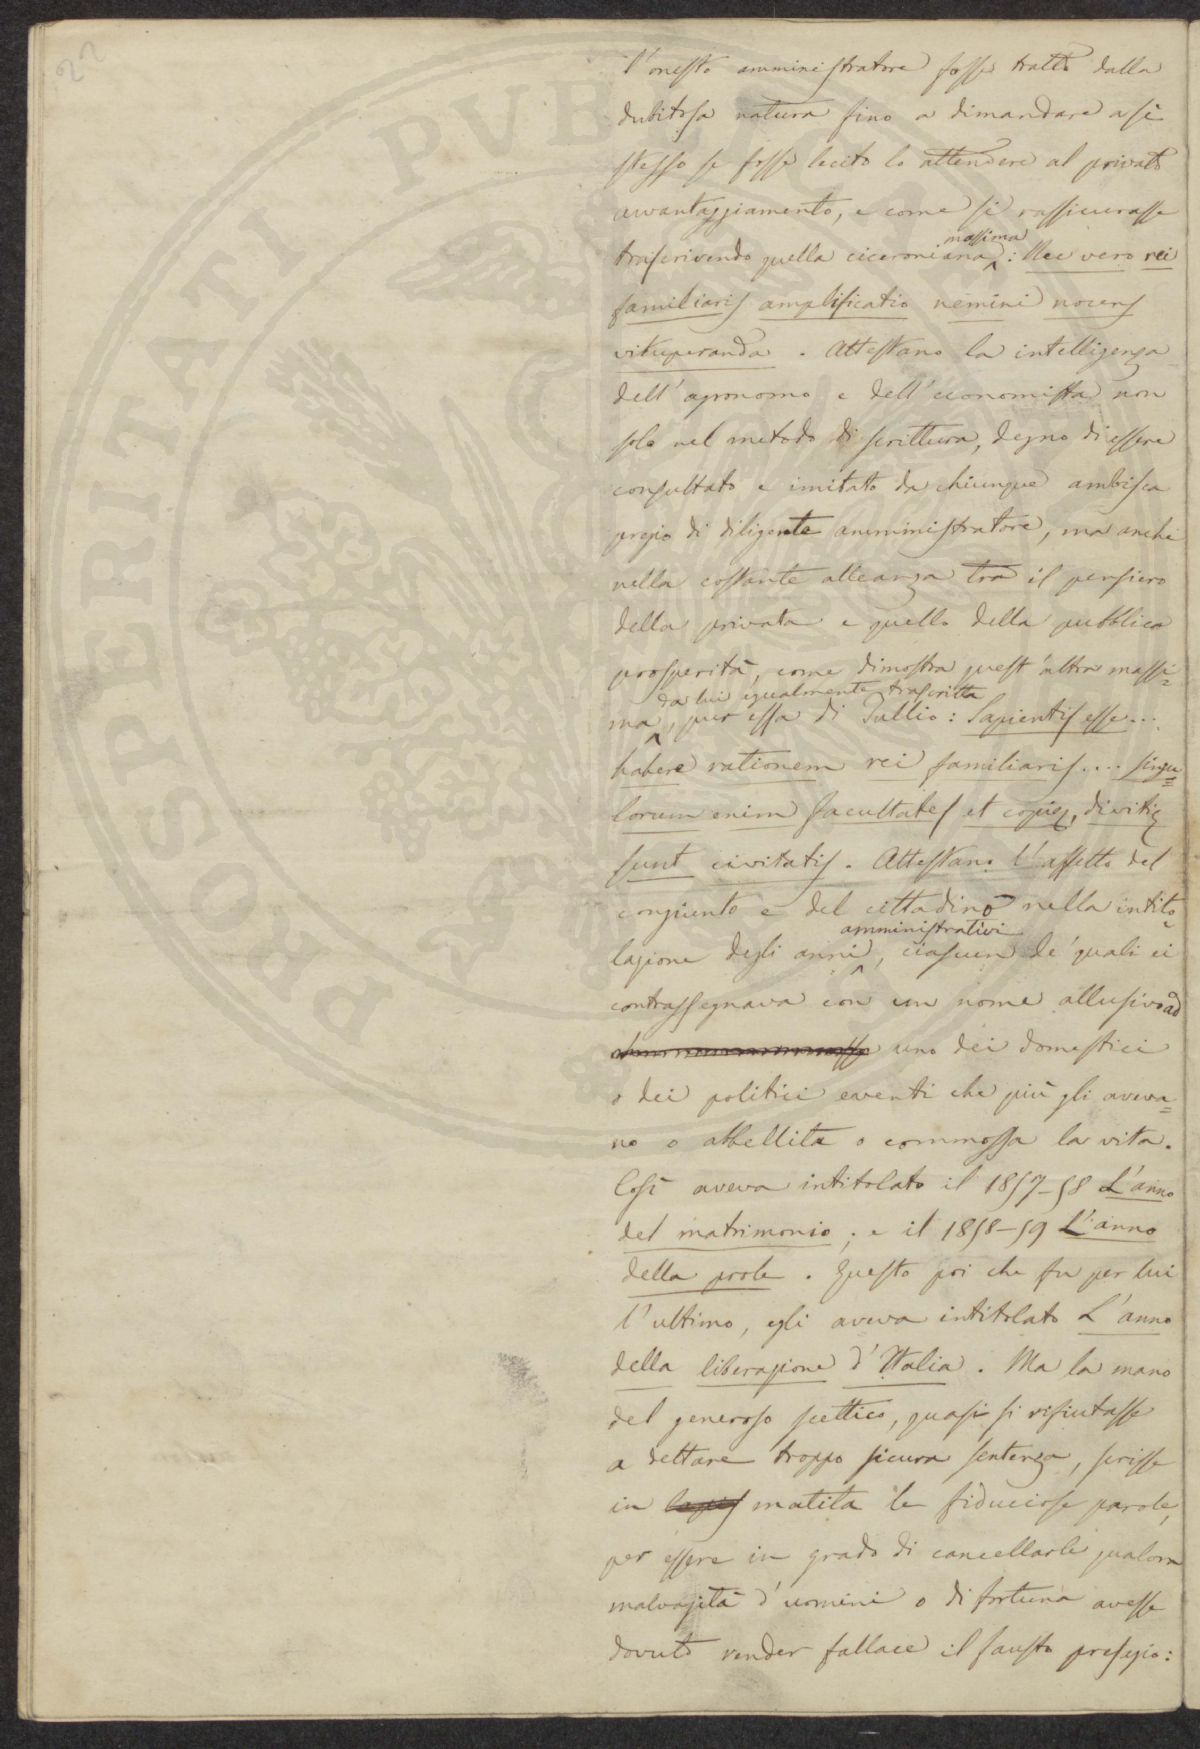 22
l'onesto amministratore fosse tratto dalla
dubitosa natura fino a dimandare a sè
stesso se fosse lecito lo attendere al privato
avvantaggiamento, e come si rassicurasse
trascrivendo quella ciceroniana massima: Nec vero rei
familiaris amplificatio nemini nocens
vituperanda. Attestano la intelligenza
dell'agronomo e dell'economista non
solo nel metodo di scrittura, degno di essere
consultato e imitato da chiunque ambisca
pregio di diligente amministratore, ma anche
nella costante alleanza tra il pensiero
della privata e quello della pubblica
prosperità, come dimostra quest'altra massi=
ma, da lui egualmente trascritta pur essa di Tullio: Sapientis esse...
habere rationem rei familiaris.... singu=
lorum enim facultates et copię, divitię
sunt civitatis. Attestano l'affetto del
congiunto e del cittadino nella intito
lazione degli anni amministrativi, ciascun de' quali ei
contrassegnava con un nome allusivo ad
uno dei domestici
o dei politici eventi che più gli aveva=
no o abbellita o commossa la vita.
Così aveva intitolato il 1857-58 L'anno
del matrimonio; e il 1858-59 L'anno
della prole. Questo poi che fu per lui
l'ultimo, egli aveva intitolato L'anno
della liberazione d'Italia. Ma la mano
del generoso scettico, quasi si rifiutasse
a dettare troppo sicura sentenza, scrisse
in lapis matita le fiduciose parole,
per essere in grado di cancellarle qualora
malvagità d'uomini o di fortuna avesse
dovuto render fallace il fausto presagio:
PROSPERITATI PVBLICAE